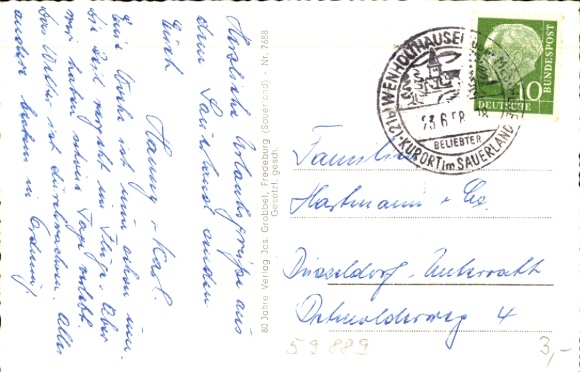 Herzliche Urlaubsgrüße aus
dem Sauerland senden
Euch
Hanny + Karl.
Eine Woche ist nun schon um.
Die Zeit vergeht im Fluge. Aber
wir haben schöne Tage verlebt.
Das Wetter ist durchwachsen. Alles
andere bestens in Ordnung!
80 Jahre Verlag Jos. Grobbel, Fredeburg (Sauerland) - Nr. 7688
Gesetzl. gesch.
(21b) WENHOLTHAUSEN
23.6.58.-18
BELIEBTER
KURORT im SAUERLAND
10
DEUTSCHE BUNDESPOST
Familie
Hartmann + Co.
Düsseldorf-Unterrath
Detmolderweg 4
59889
3,-